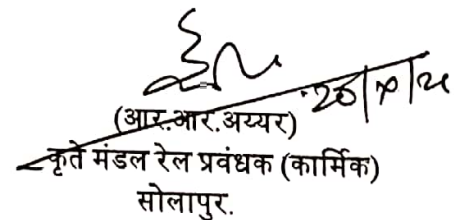 (आर.आर.अय्यर)
कृते मंडल रेल प्रवंधक (कार्मिक)
सोलापुर.